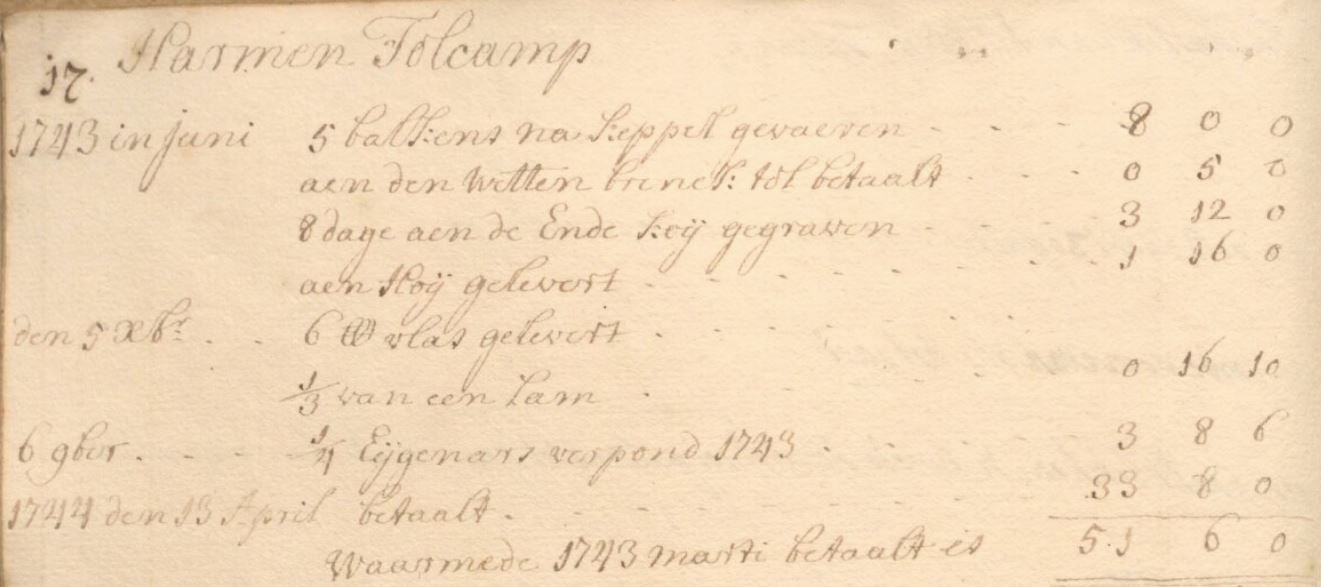 17. Harmen Tolcamp
1743 in juni 5 balkens na Keppel gevaeren - - - 8 0 0
aen den Witten brinck: tol betaalt - - - 0 5 0
8 dage aen de Ende Koÿ gegraven - - - 3 12 0
aen Hoÿ gelevert - - - 1 16 0
den 5 xbr. . . 6 ℔ vlas gelevert
1/3 van een Lam . 0 16 10
6 9ber. - - - 1/4 Eÿgenars verpond 1743 . 3 8 6
1744 den 13 April betaalt. - - - 33 8 0
Waarmede 1743 marti betaalt is 51 6 0